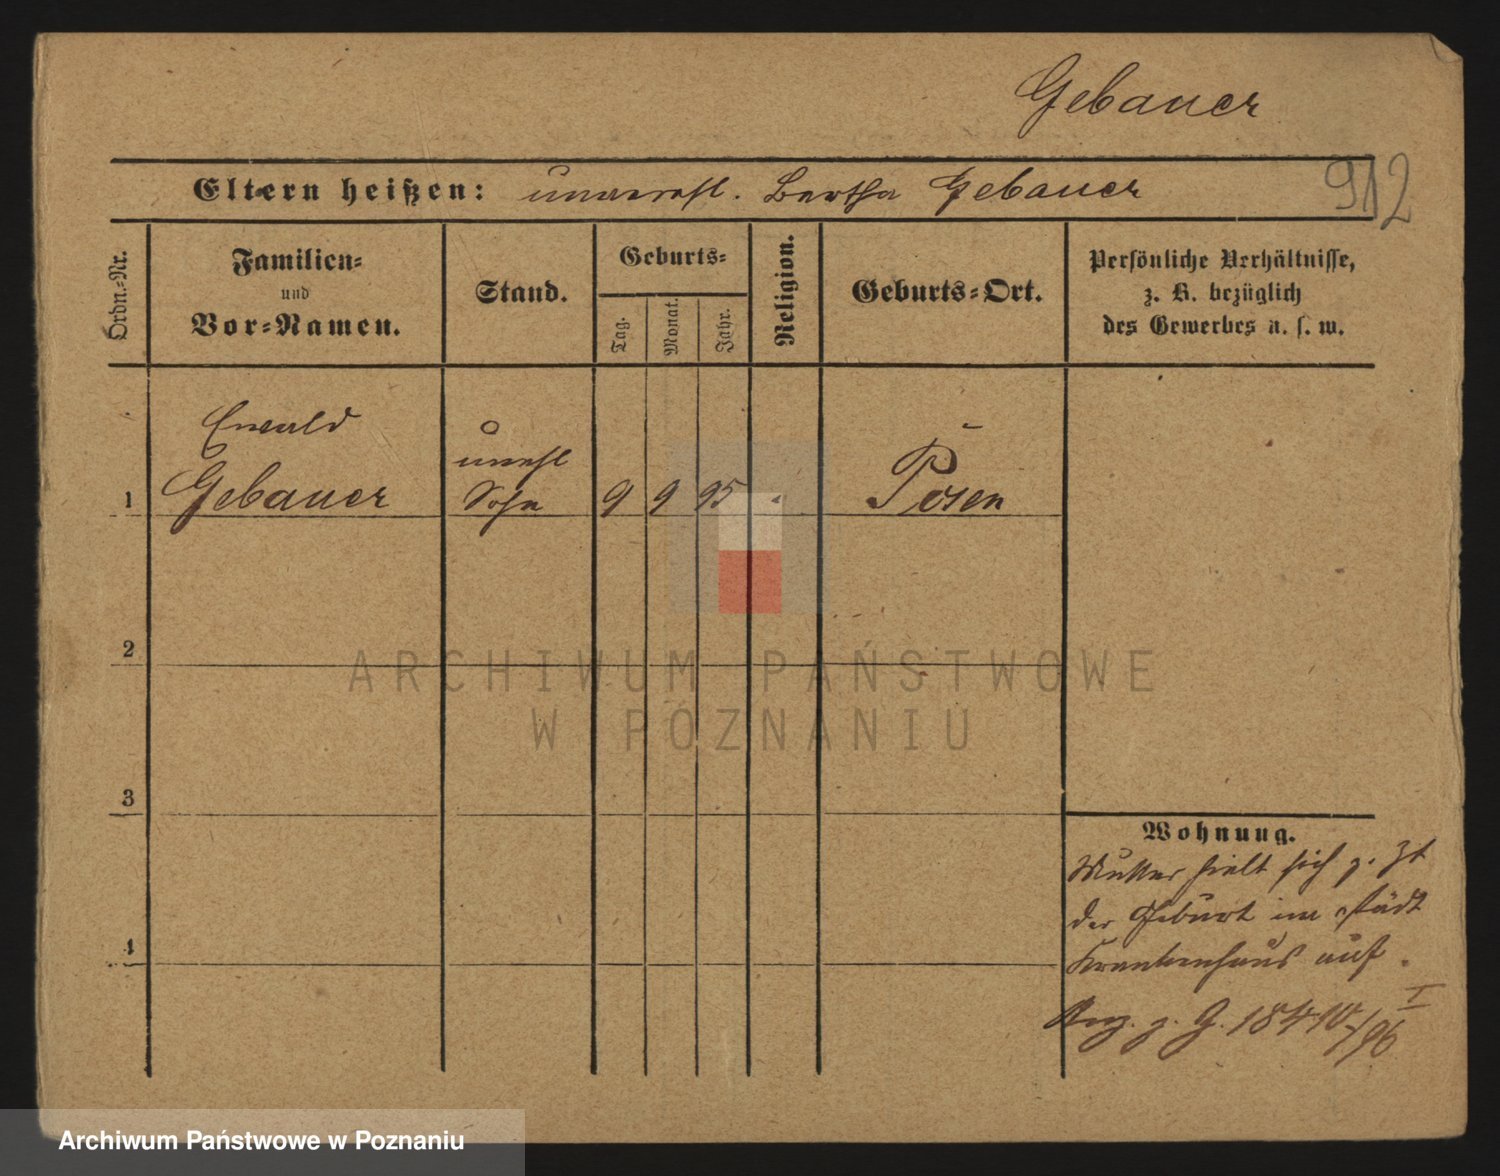 Gebauer
912
Eltern heißen: unverehl. Bertha Gebauer
Ordn.-Nr.
Familien-
und
Vor-Namen.
Stand.
Geburts-
Tag.
Monat.
Jahr.
Religion.
Geburts-Ort.
Persönliche Verhältnisse,
z. B. bezüglich
des Gewerbes u. s. w.
Ewald
Gebauer
unehl
Sohn
1
9 9 95
Posen
2
3
4
Wohnung.
Mutter hielt sich z. Zt
der Geburt im städt
Krankenhaus auf.
z. G.
/96
I
ARCHIWUM PAŃSTWOWE
W POZNANIU
Archiwum Państwowe w Poznaniu